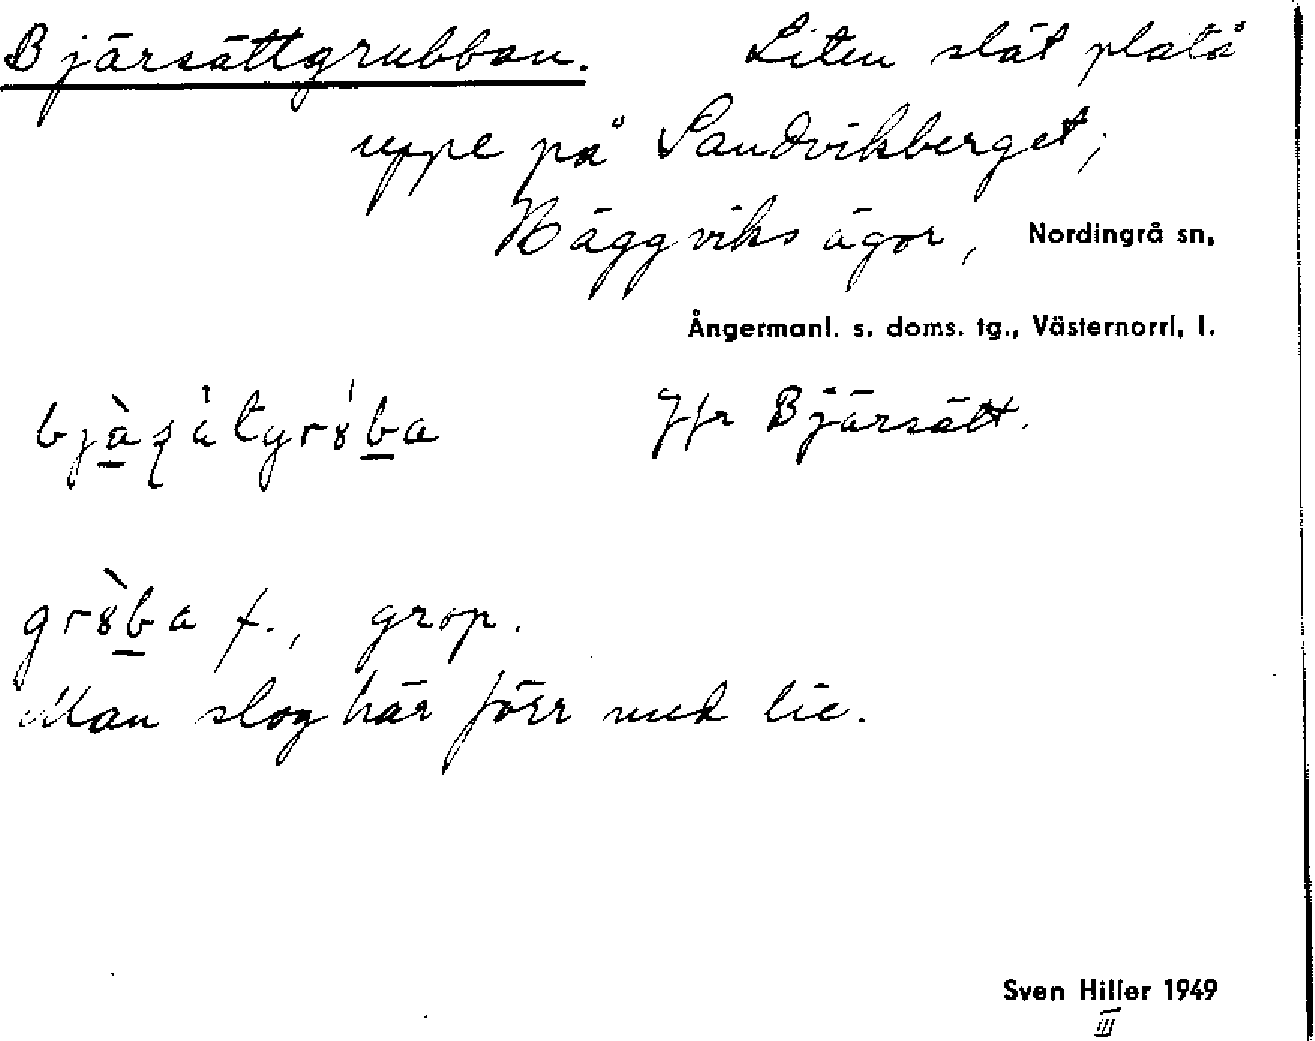 Bjärsättgrubban. Liten slät platå
uppe på Sandvikberget,
Häggviks ägor, Nordingrå sn,
Ångermanl. s. doms. tg., Västernorrl. l.
Jfr Bjärsätt.
f., grop.
Man slog här förr med lie.
Sven Hiller 1949
III